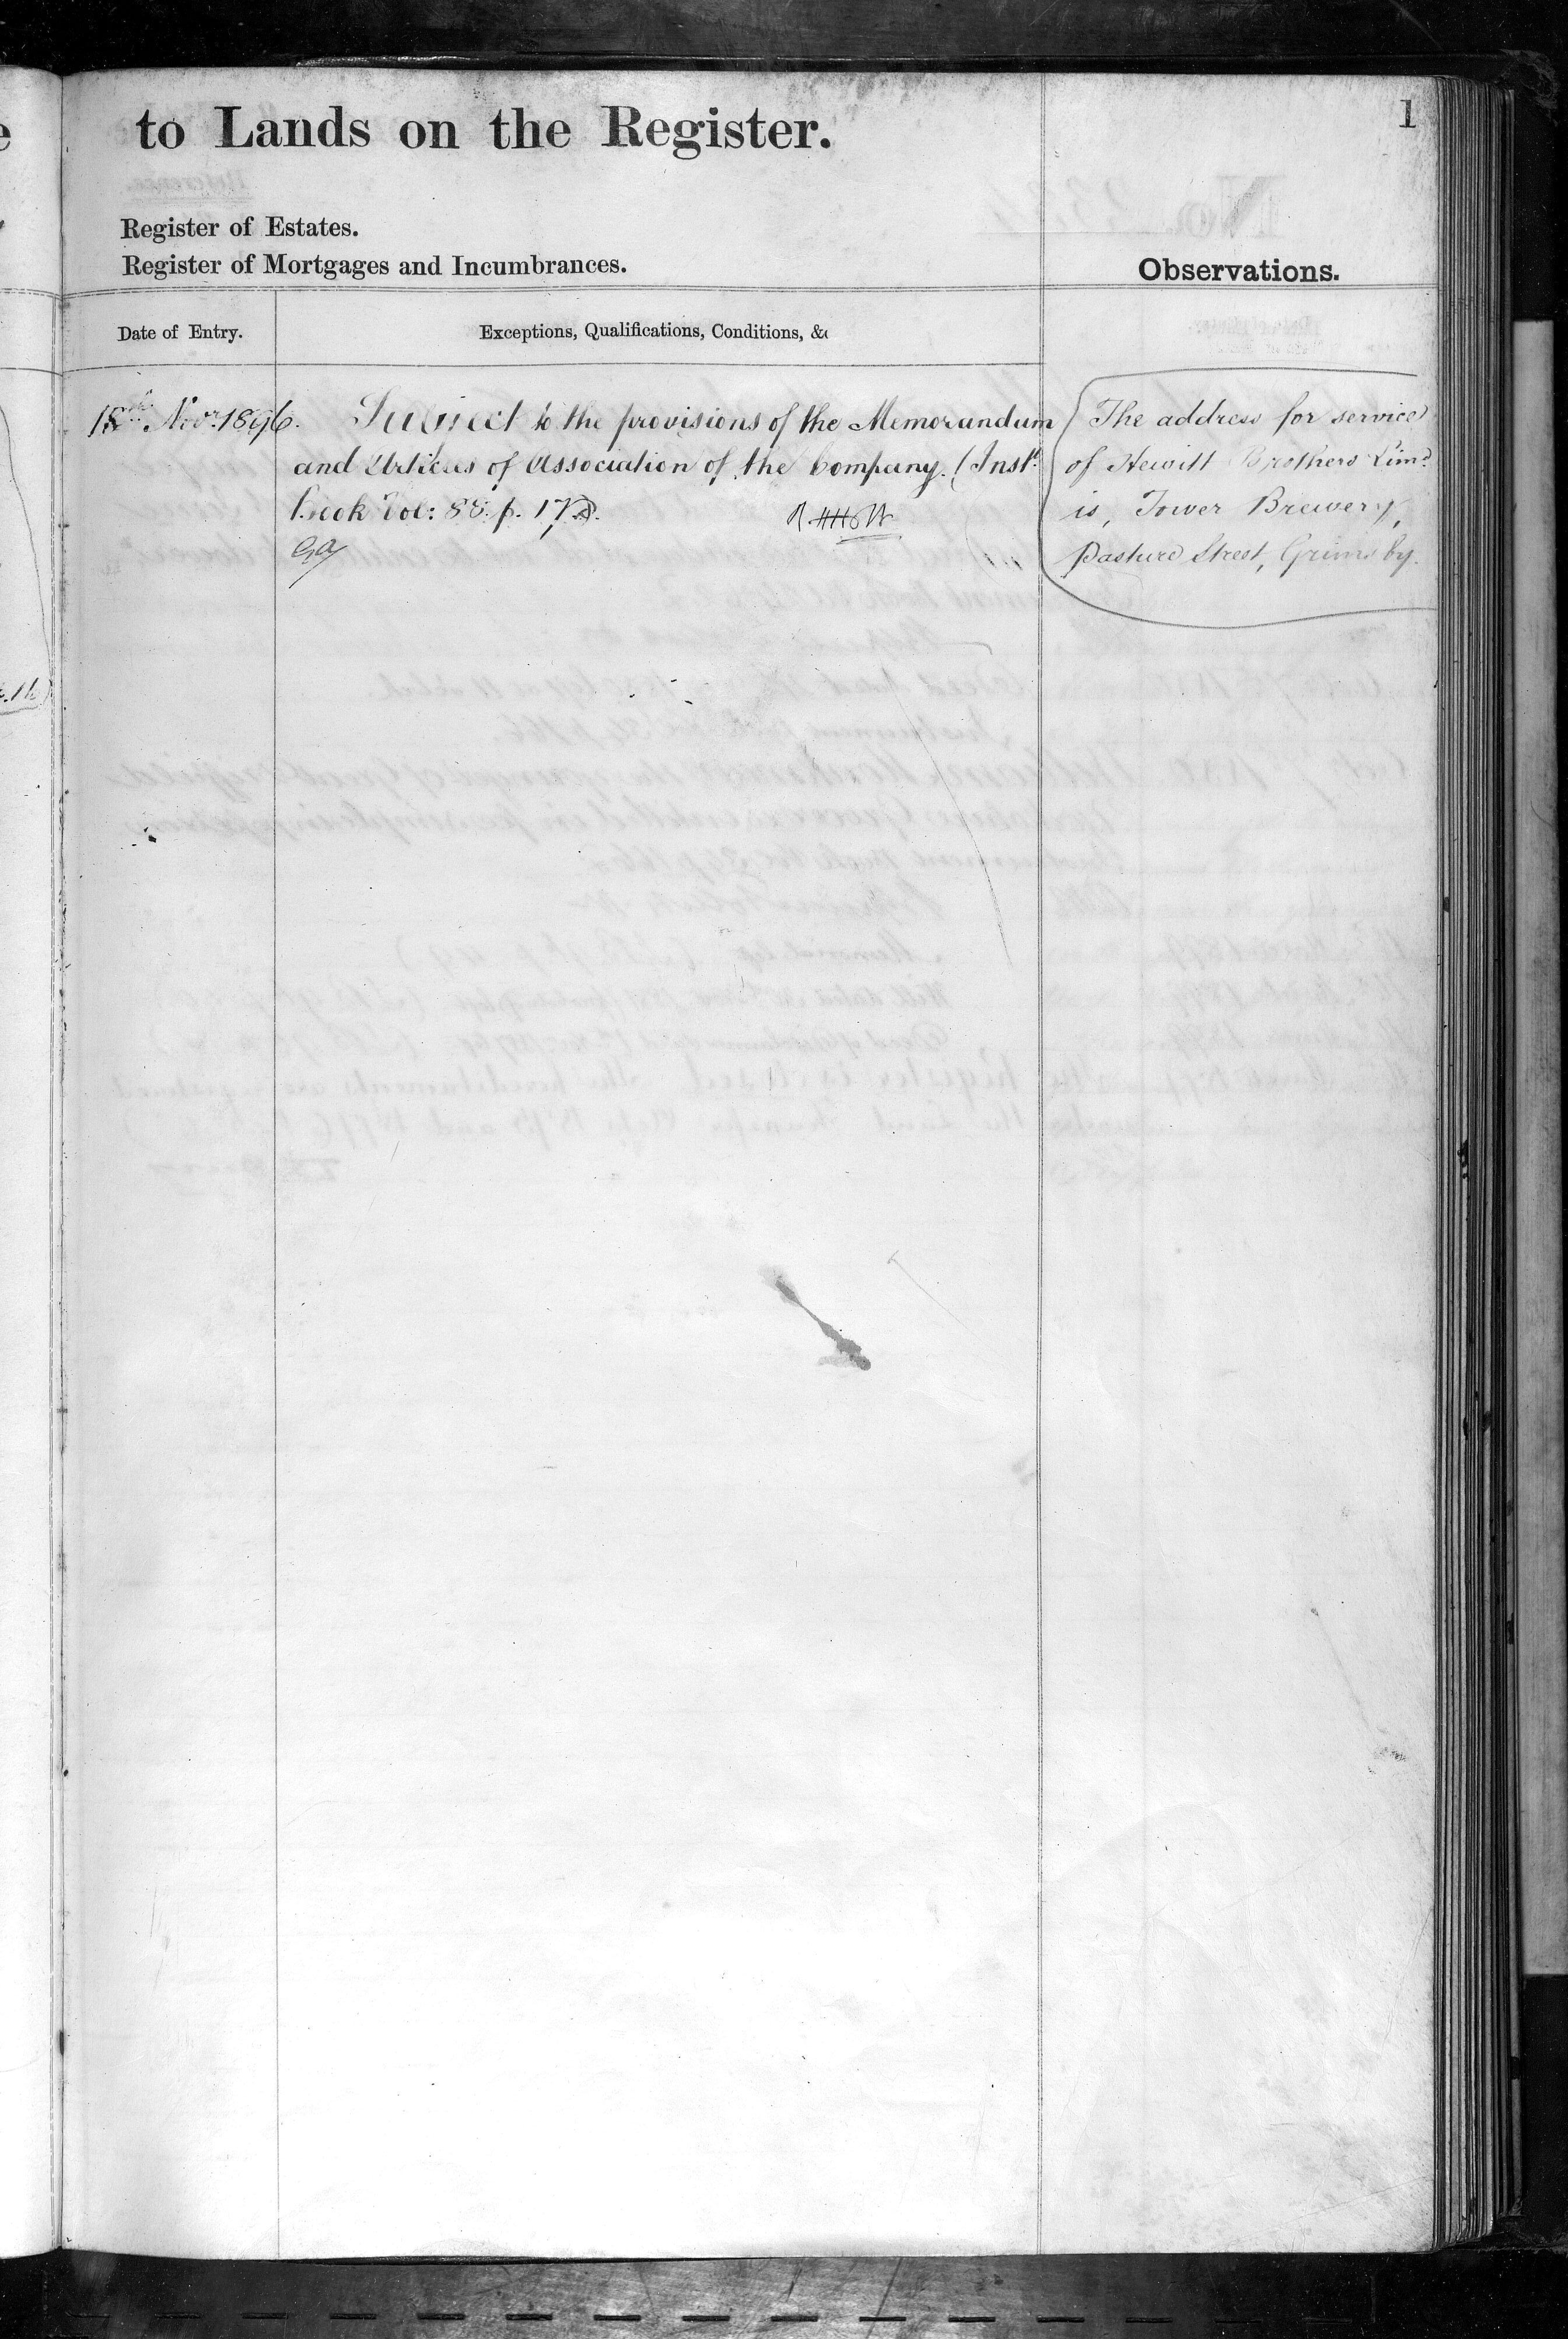 to Lands on the Register.
1
Register of Estates.
Register of Mortgages and Incumbrances.
Observations.
Date of Entry.
Exceptions, Qualifications, Conditions, &c
Novr. 1896.
Subject to the provisions of the Memorandum
and Articles of Association of the Company. (Inst.
Book Vol: 88. p.
The address for service
of Hewitt Brothers Limd.
is, Tower Brewery,
Pasture Street, Grimsby.